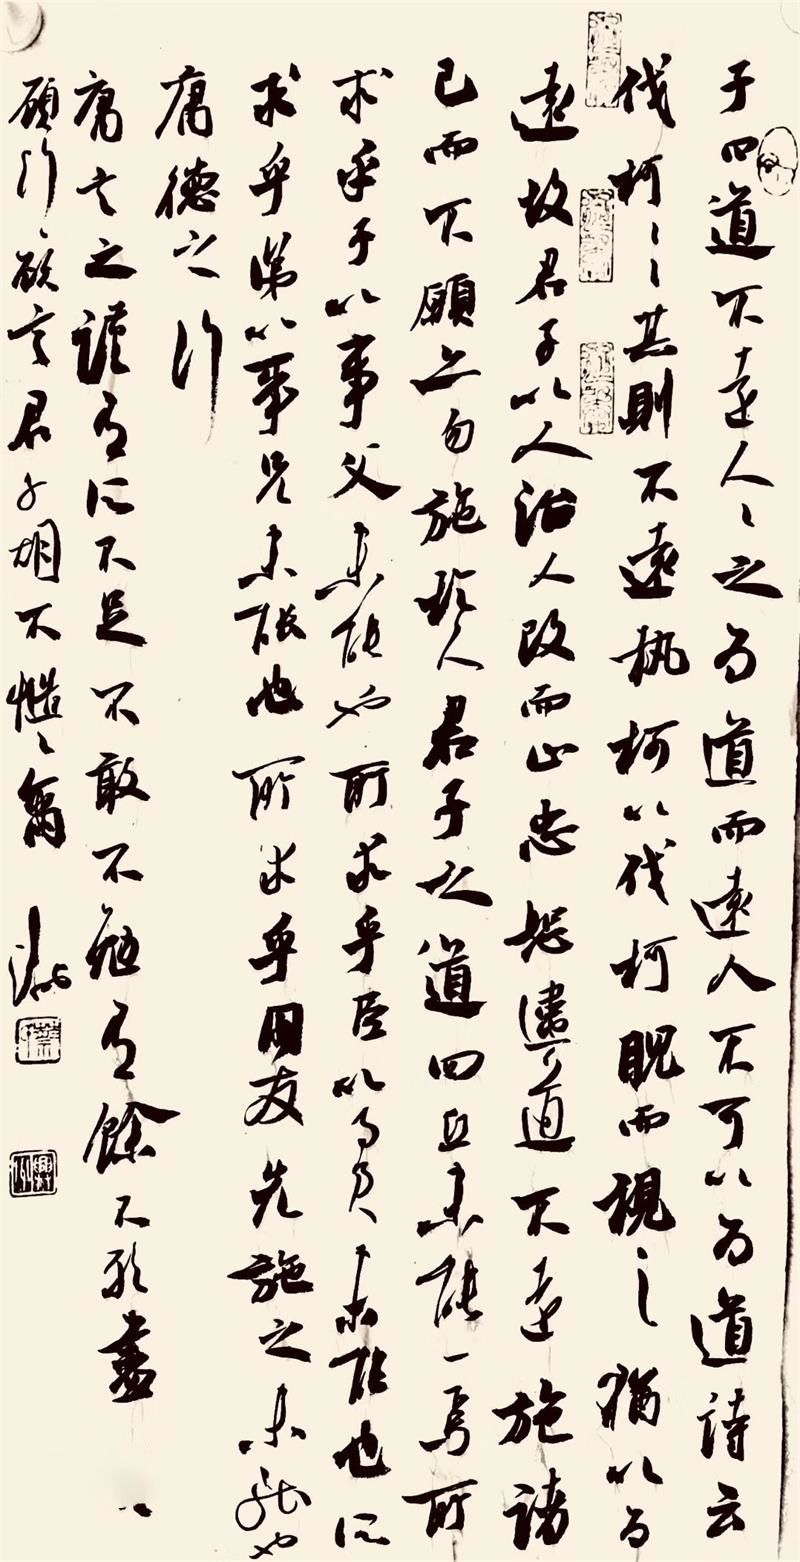 子曰道不远人人之为道而远人不可以为道诗云
伐柯伐柯其則不遠执柯以伐柯睨而視之猶以为
遠故君子以人治人改而止忠恕違道不远施諸
己而不願亦勿施於人君子之道四丘未能一焉所
求乎子以事父未能也所求乎臣以事君未能也所
求乎弟以事兄未能也所求乎朋友先施之未能也
庸德之行
庸言之謹有所不足不敢不勉有餘不敢盡
顾行行顾言君子胡不慥慥爾